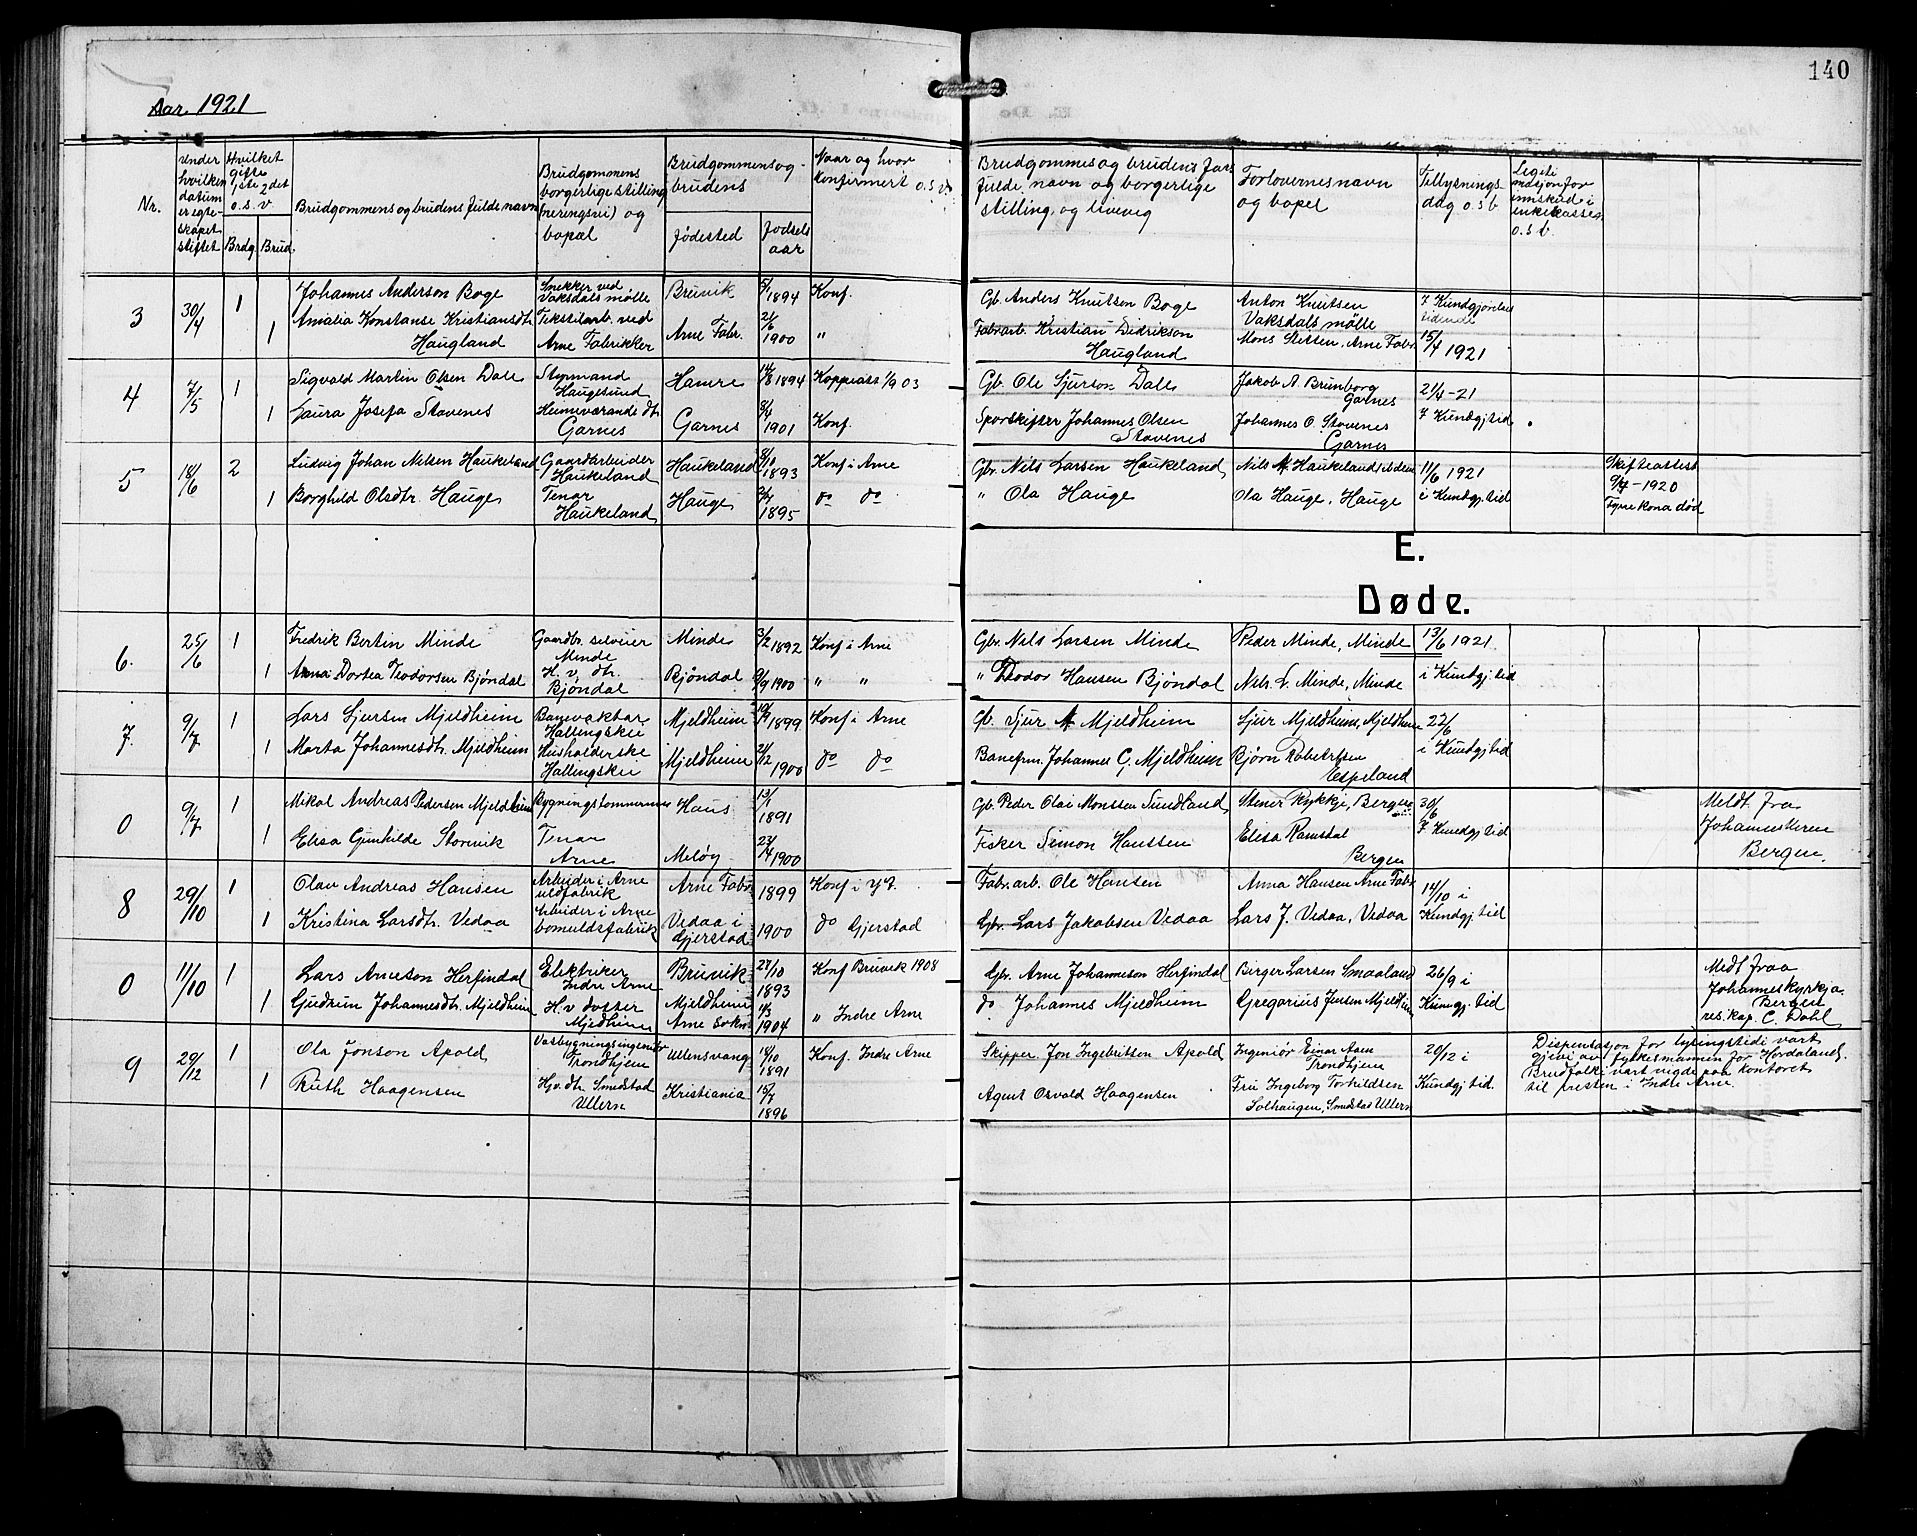 140
Aar 1921
Nr.
Under hvilken datum er egteskapet stiftet
Hvilket gifte 1ste 2det o.s.v
Brdg. Brud.
Brudgommens og brudens fulde navn
Brudgommens borgerlige stilling (neringsvei) og bopæl
Brudgommens og brudens
Fødested
Fødselsaar
Naar og hvor konfirmert o.s.v
Brudgommes og brudens fars fulde, navn og borgerlige stilling, og livevig
Forlovernes navn og bopel
Tillysningsdag o.s.v.
o.s.v.
3 30/4 1 Johannes Anderson Boge Snekker ved Vaksdals mølle Bruvik 1894 Konf.
Gb. Anders Knutson Boge Anton Knutsen Vaksdals mølle
1 Amalia Konstanse Kristiansdtr Haugland Tekstilarb. ved Arne Fabrikker Arne Fabr. 21/6 1900 "
Fabrarb. Kristian Didrikson Haugland Mons Stetten, Arne Fabr. 15/4 1921
4 7/5 1 Sigvald Martin Olsen Dale Styrmand Haugesund Hamre 14/8 1894 Koppeatt 1/9 03
Gb. Ole Sjurson Dale Jakob A. Brunborg Garnes 21/4-21
1 Laura Josefa Stavenes Heimverande dtr. Garnes Garnes 1901 Konf.
Sporskifter Johannes Olsen Stavenes Johannes O. Stavenes Garnes 7 Kundgj tid
5 18/6 2 Ludvig Johan Nilsen Haukeland Gaardarbeider Haukeland Haukeland 8/10 1893 Konf i Arne
Gbr. Nils Larsen Haukeland, Nils M. Haukeland 11/6 1921 Skifteattest 9/7-1920
1 Borghild Olsdtr. Hauge Tenar Haukeland Hauge 1895 do do
" Ola Hauge Ola Hauge, Hauge i Kundgj tid Fyrre kona død
E.
Døde.
6. 25/6 1 Fredrik Bertin Minde Gaardbr. selveier Minde Minde 3/2 1892 Konf i Arne
Gbr. Nils Larsen Minde Peder Minde, Minde 13/6 1921
1 Anna Dortea Teodorsen Bjøndal H. v. dtr. Bjøndal Bjøndal 9/9 1900 " "
" Teodor Hansen Bjøndal Nils L. Minde, Minde i Kundgj tid
7. 9/7 1 Lars Sjursen Mjeldheim Banevaktar Hallingskei Mjeldheim 1899 Konf i Arne
Gb. Sjur M Mjeldheim Sjur Mjeldheim, Mjeldheim 22/6
1 Marta Johannesdtr. Mjeldheim Husholderske Hallingskei Mjeldheim 21/2 1900 do do
Banefrm. Johannes C. Mjeldheim Bjørn Robertsen Espeland i Kundgj tid
0 9/7 1 Mikal Andreas Pedersen Mjeldheim Bygningstømmerman Haus 13/1 1891
Gb. Peder Olai Monssen Sundland, Stener Rykkje, Bergen 30/6 Meldt. fra Johanneskirken Bergen.
1 Elisa Gunhilde Storvik Tenar Arne Meløy 1900
Fisker Simon Hanssen Elisa Ramsdal Bergen 7 Kundgj tid
8 29/10 1 Olav Andreas Hansen Arbeider i Arne uldfabrik Arne Fabr. 1899 Konf i
Fabr.arb. Ole Hansen Anna Hansen Arne Fabr 14/10 i
1 Kristina Larsdtr. Vedaa Arbeider i Arne bomuldsfabrik Vedaa i Gjerstad 1900 do Gjerstad
Gbr. Lars Jakobsen Vedaa Lars J. Vedaa, Vedaa Kundgj tid
0 11/10 1 Lars Arneson Herfindal Elektriker Indre Arne Bruvik 27/10 1893 Konf Bruvik 1908
Gbr. Arne Johanneson Herfindal Birger Larsen Smaaland 26/9 i Medt fraa Johanneskyrkja Bergen res. kap. C. Dahl
1 Gudrun Johannesdtr. Mjeldheim H.v dotter Mjeldheim Mjeldheim Arne Sokn 14/3 1904 " Indre Arne
do Johannes Mjeldheim Gregorius Jensen Mjeldheim Kundgj. tid
9 29/12 1 Ola Jonson Apold Vasbygningsingeniør Trondhjem Ullensvang 18/10 1891 Konf. Indre Arne
Skipper Jon Ingebritson Apold Ingeniør Einar Aaen Trondhjem 20/12 i Dispensasjon for lysingstidi vart gjevi av fylkesmannen for Hordaland. Brudfolki vart vigde paa kontoret til presten i Indre Arne.
1 Ruth Haagensen Hjv. dtr. Smedstad Ullern Kristiania 15/7 1896
Agent Osvald Haagensen Fru Ingeborg Torkildsen Solhaugen, Smedstad Ullern Kundgj tid.